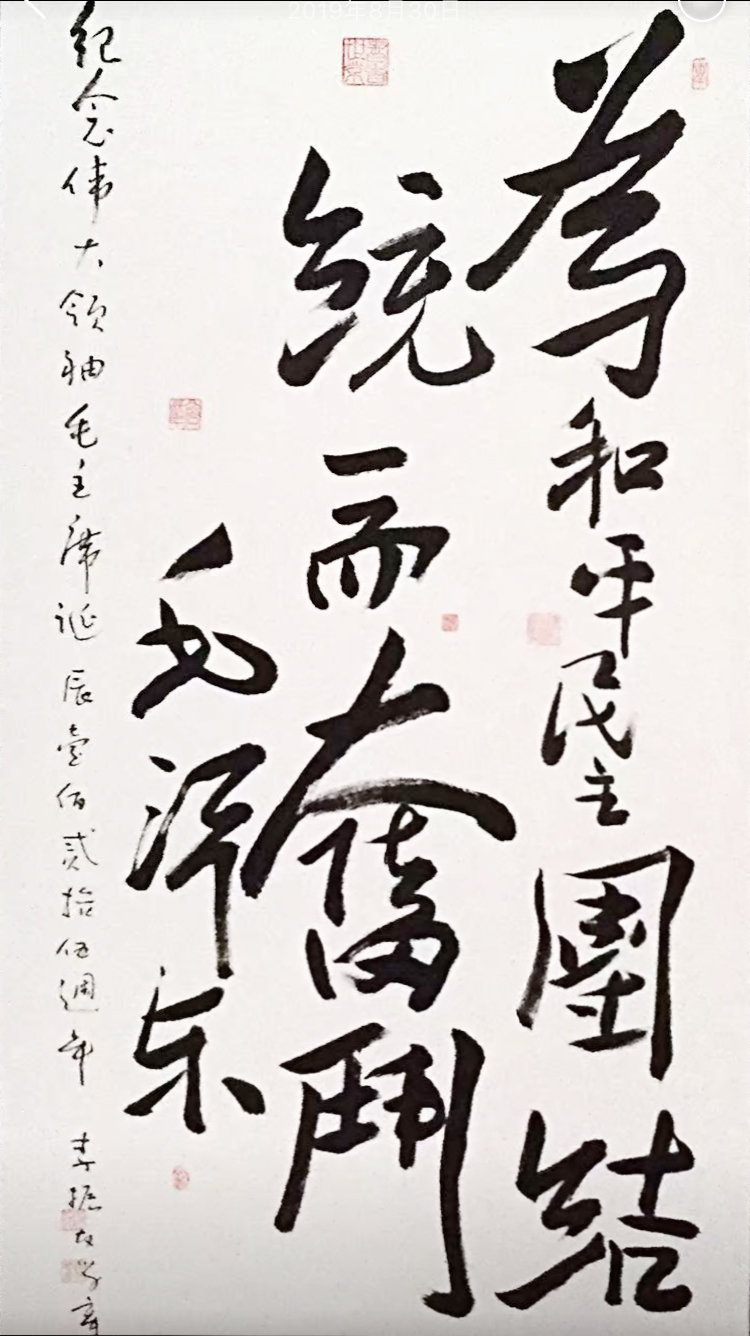 2019年8月30日
為和平民主團結
統一而奮鬥
毛泽东
纪念伟大领袖毛主席诞辰壹佰贰拾伍週年